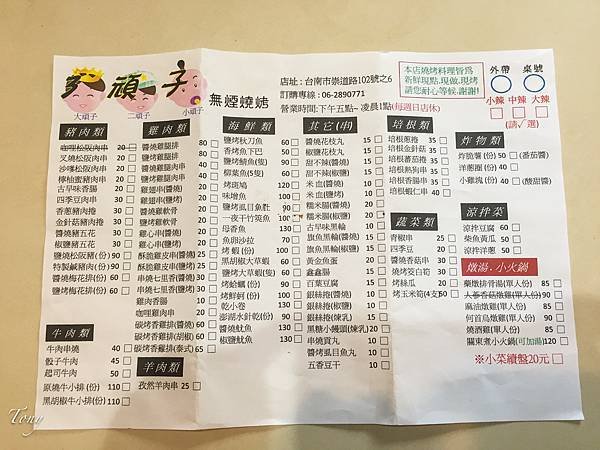 頑子
大頑子
二頑子
小頑子
無煙燒烤
店址：台南市崇道路102號之6
訂購專線：06-2890771
營業時間：下午五點~凌晨1點(每週日店休)
本店燒烤料理皆為
新鮮現點.現做.現烤
請您耐心等候.謝謝!
外帶 桌號
小辣 中辣 大辣
(請 選)
豬肉類
咖哩松阪肉串 20
叉燒松阪肉串 20
沙嗲松阪肉串 20
檸檬蜜豬肉串 20
古早味香腸 20
四季豆肉串 20
香蔥豬肉捲 20
金針菇豬肉捲 20
醬燒豬五花 20
椒鹽豬五花 20
鹽燒松阪豬(份) 90
特製鹹豬肉(份) 90
醬烤梅花排(份) 60
鹽烤梅花排(份) 60
牛肉類
牛肉串燒 40
骰子牛肉 45
起司牛肉 50
原燒牛小排(份) 110
黑胡椒牛小排(份) 110
雞肉類
醬燒雞腿排 80
鹽烤雞腿排 80
雞腿肉串(醬燒)
雞腿肉串(鹽烤)
雞翅(串)
雞翅串(醬燒)
醬燒雞軟骨
鹽烤雞軟骨
雞心串(醬燒)
雞心串(鹽烤)
酥脆雞皮串(醬燒)
酥脆雞皮串(鹽烤)
串燒七里香(醬燒)
串燒七里香(鹽烤)
雞肉香腸
咖哩雞肉串
碳烤香雞排(醬燒)
碳烤香雞排(胡椒)
碳烤香雞排(泰式) 65
羊肉類
孜然羊肉串 25
海鮮類
鹽烤秋刀魚 50
香烤魚下巴 50
鹽烤鯖魚(隻) 90
柳葉魚(5隻) 60
烤斑鳩 120
味增魚 100
鹽烤虱目魚肚
一夜干竹筴魚
母香魚 130
魚卵沙拉 70
烤蝦(份) 100
黑胡椒大草蝦 60
鹽烤大草蝦(隻) 60
烤蛤蠣(份) 90
烤鮮蚵(份) 90
乾小卷 130
澎湖水針乾(份) 90
醬燒魷魚 130
椒鹽魷魚 130
其它(串)
醬燒花枝丸 15
椒鹽花枝丸 15
甜不辣(醬燒) 15
甜不辣(椒鹽) 15
米血(醬燒) 10
米血(椒鹽) 10
糯米腸(醬燒)
糯米腸(椒鹽)
古早味黑輪
旗魚黑輪(醬燒) 15
旗魚黑輪(椒鹽) 15
黃金魚蛋 20
鑫鑫腸 20
百葉豆腐 20
銀絲捲(醬燒) 20
銀絲捲(煉乳) 20
黑糖小饅頭(煉乳) 20
串燒貢丸 10
醬烤虱目魚丸 10
五香豆干 10
培根類
培根蔥捲 35
培根金針菇 35
培根番茄捲 35
培根熱狗串 35
培根香腸串 35
培根蝦仁串 40
蔬菜類
青椒串 25
四季豆 20
醬燒香菇串 30
燒烤筊白筍 30
烤絲瓜 50
烤玉米筍(4支) 50
炸物類
炸脆薯(份) 50 (番茄醬)
洋蔥圈(份) 40
小雞塊(份) 40 (酸甜醬)
涼拌菜
涼拌豆腐 60
柴魚黃瓜 50
涼拌洋蔥 50
燉湯.小火鍋
藥燉排骨湯(單人份) 85
人蔘香菇燉雞(單人份) 90
麻油燉雞(單人份) 85
何首烏燉雞(單人份) 85
燒酒雞(單人份) 85
關東煮小火鍋(可加湯) 120
※小菜續盤20元
Tony